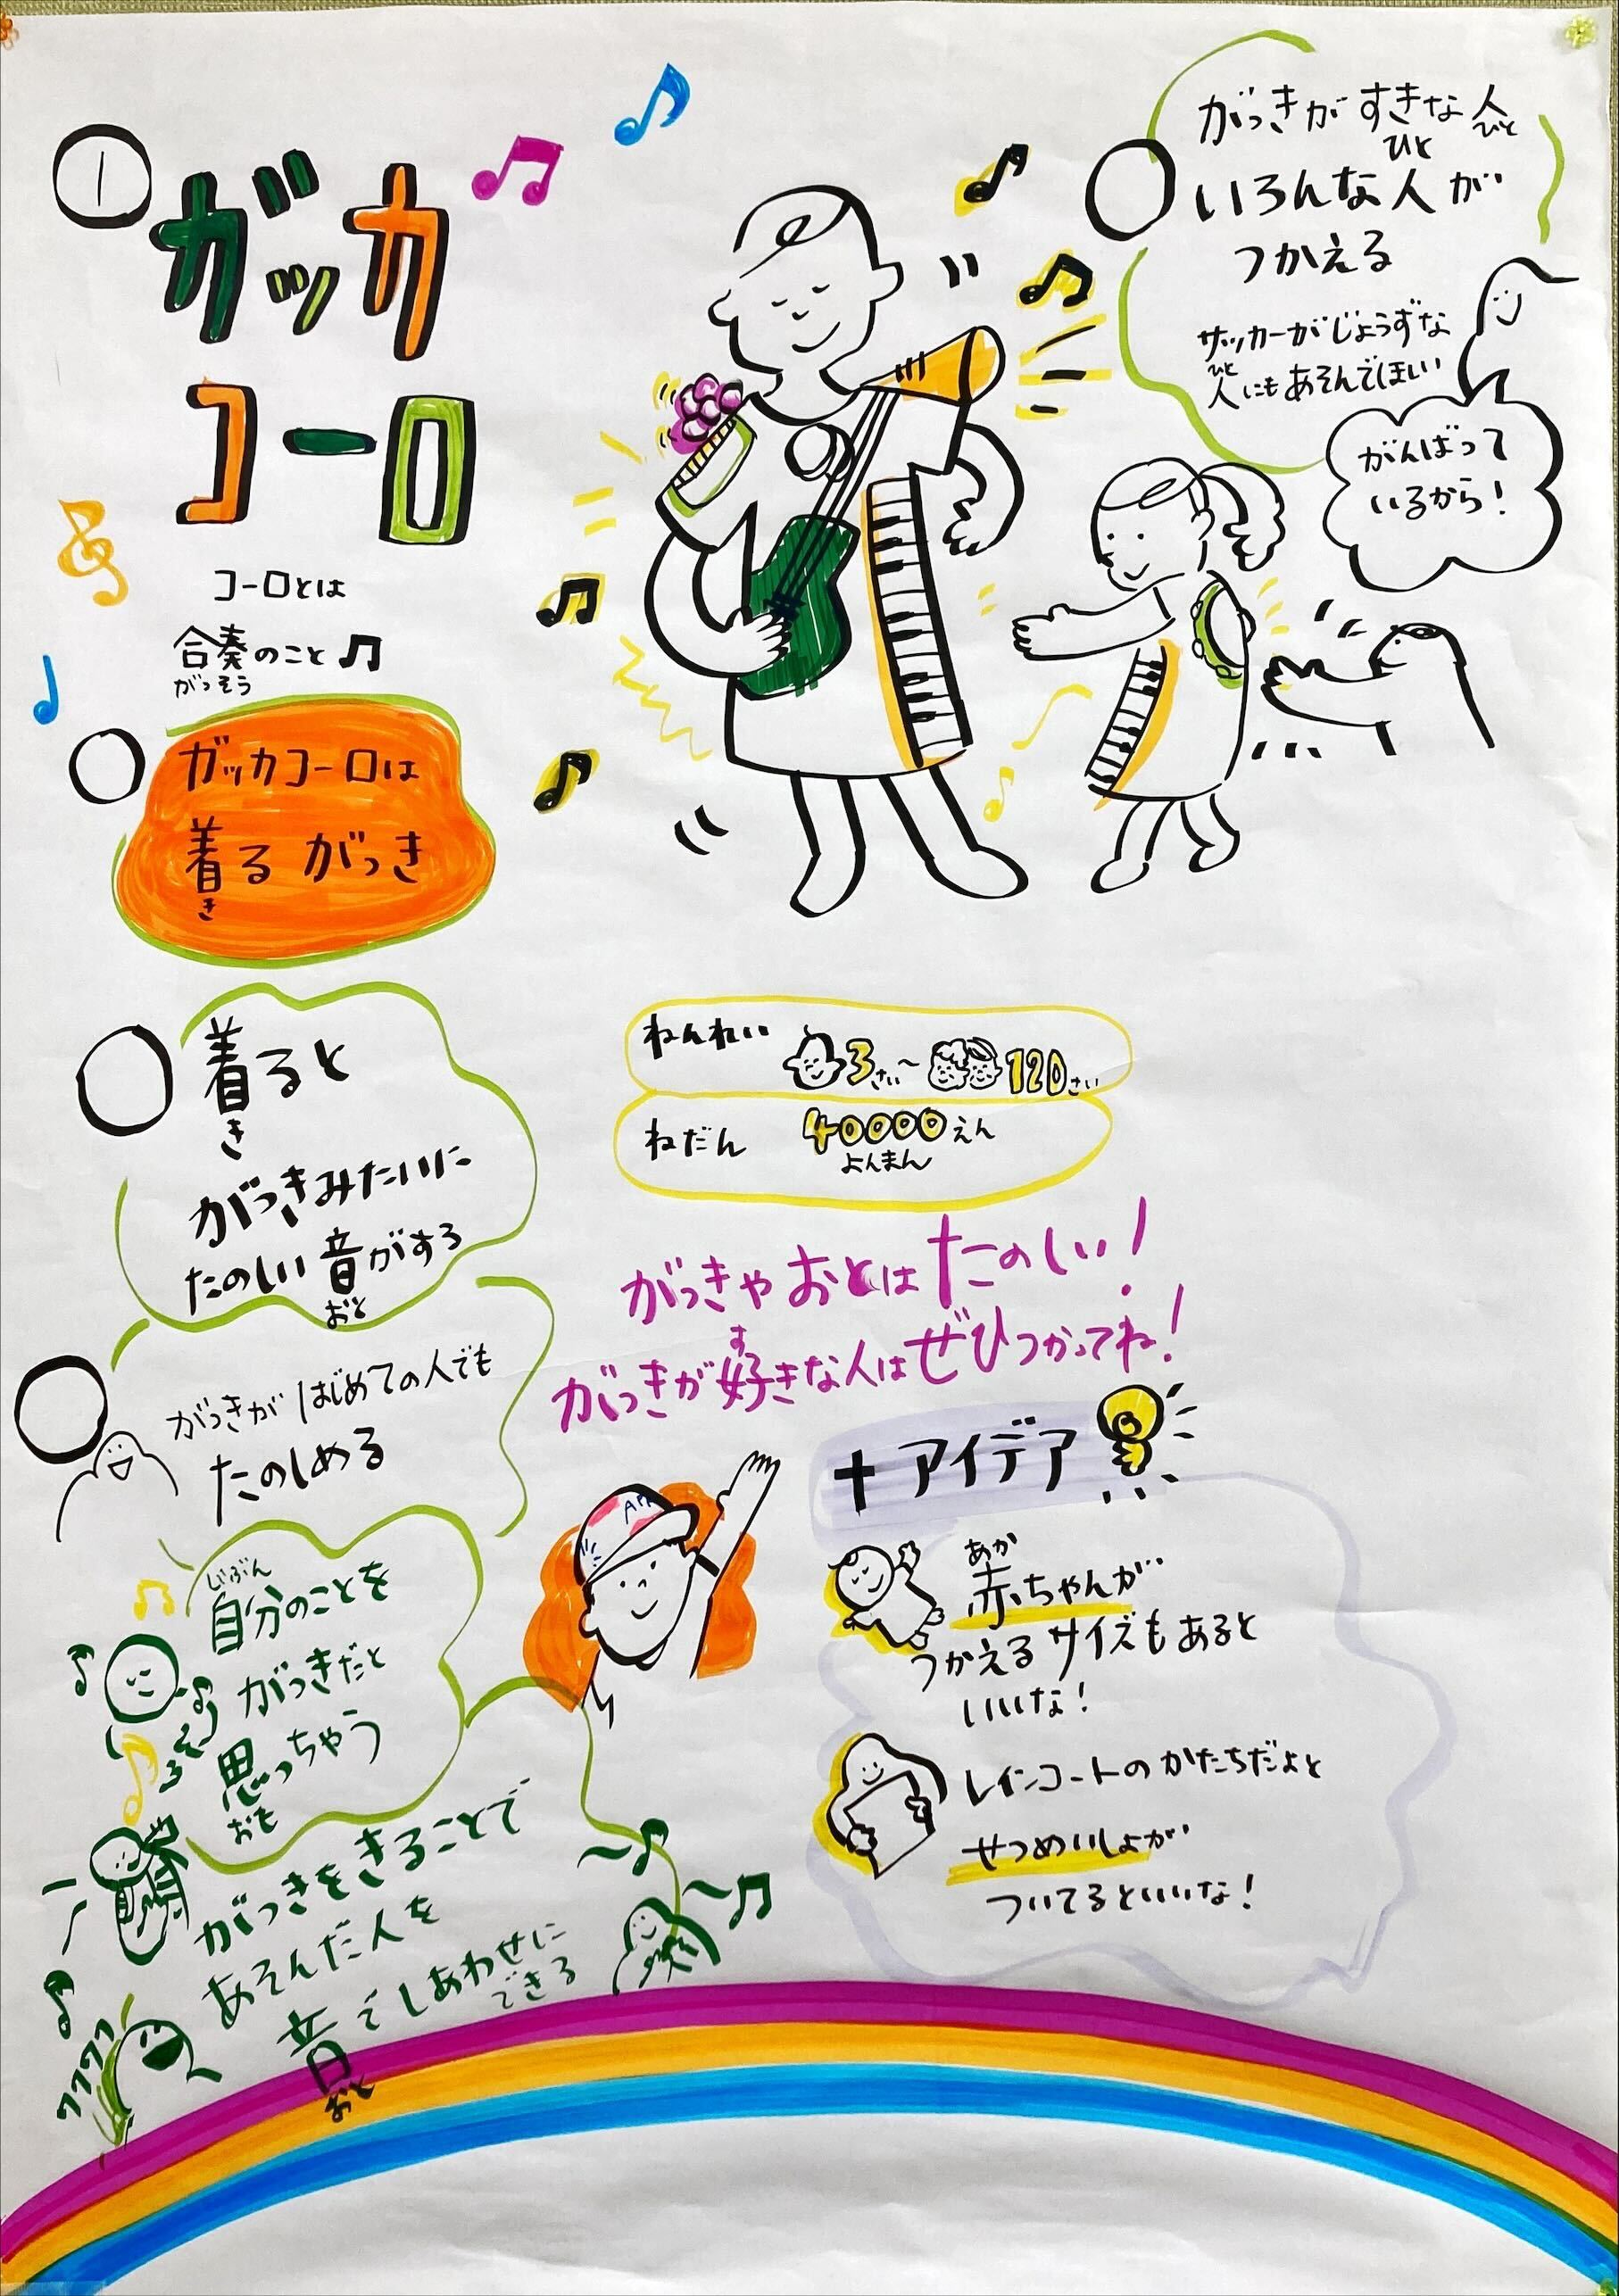 1
ガッカ
コーロ
コーロとは
合奏のこと
がっそう
ガッカコーロは
着る がっき
き
着ると
き
がっきみたいに
たのしい音がする
おと
がっきが はじめての人でも
たのしめる
じぶん
自分のことを
がっきだと
思っちゃう
おも
がっきをきることで
あそんだ人を
音でしあわせに
できる
おと
ワクワク
がっきが すきな 人
ひと
ひと
いろんな 人 が
つかえる
サッカーがじょうずな
ひと
人にもあそんでほしい
がんばって
いるから!
ねんれい 3さい~120さい
ねだん 40000えん
よんまん
がっきや おとは たのしい!
す
がっきが好きな人は ぜひつかってね!
+アイデア
あか
赤ちゃんが
つかえる サイズも あると
いいな!
レインコートの かたちだよと
せつめいしょが
ついてるといいな!